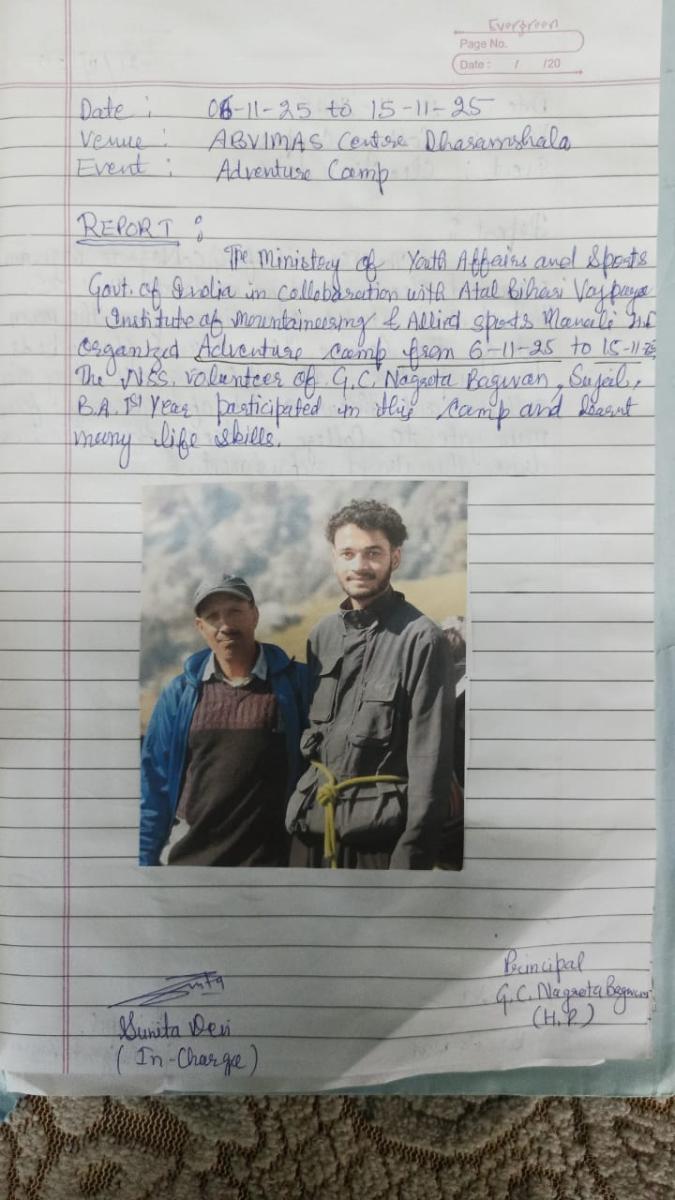 Evergreen
Page No.
Date : / /20
Date : 06-11-25 to 15-11-25
Venue : ABVIMAS Centre Dharamshala
Event : Adventure Camp
REPORT :
The Ministry of Youth Affairs and Sports
Govt. of India in collaboration with Atal Bihari Vajpayee
Institute of Mountaineering & Allied sports Manali
organized Adventure camp from 6-11-25 to 15-11-25
The NSS volunteer of G.C. Nagrota Bagwan, Sujal,
B.A. 1st Year participated in this camp and learnt
many life skills.
Principal
G.C. Nagrota Bagwan
(H.P.)
Sunita Devi
(In-Charge)